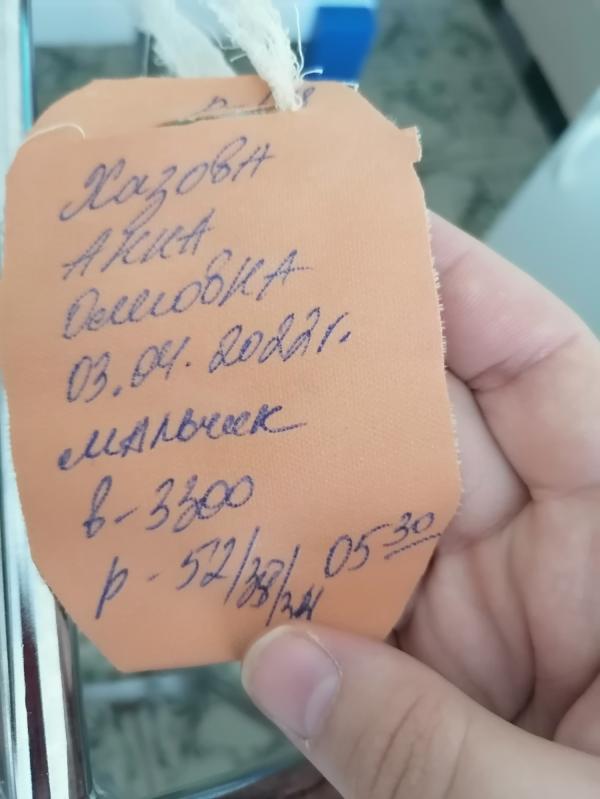 Хазова
Анна
03.04.2022г.
мальчик
в-3300
р-52/38/34 05 30